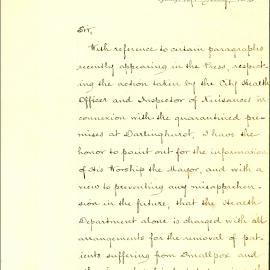 Sir,
With reference to certain paragraphs
recently appearing in the Press, respect-
ing the action taken by the City Health
Officer and Inspector of Nuisances in
connexion with the quarantined pre-
mises at Darlinghurst, I have the
honor to point out for the information
of His Worship the Mayor, and with a
view to preventing any misapprehen-
sion in the future, that the Health
Department alone is charged with all
arrangements for the removal of pat-
ients suffering from Smallpox and